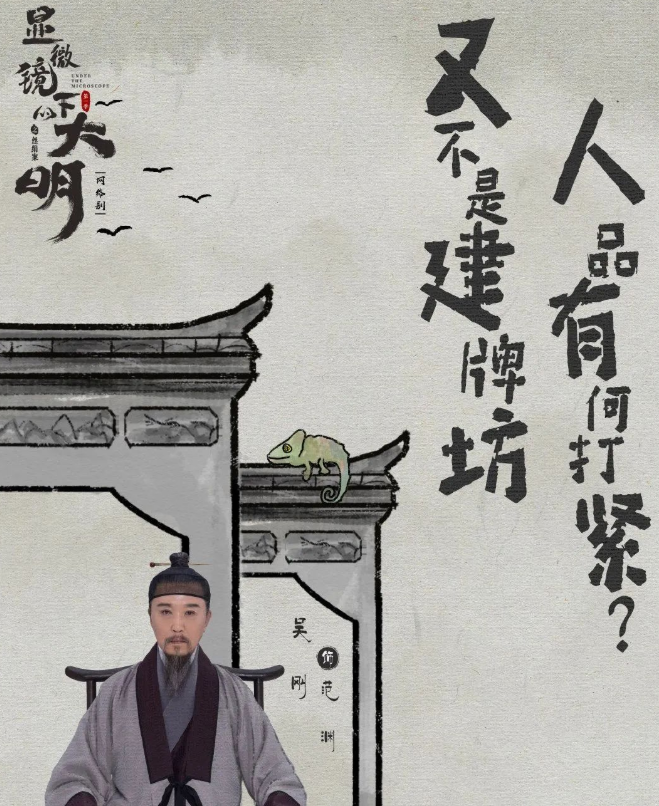 显微镜下的大明
之丝绢案
UNDER
THE
MICROSCOPE
第一季
网络剧
人品有何打紧？
又不是建牌坊
吴刚
饰
范渊